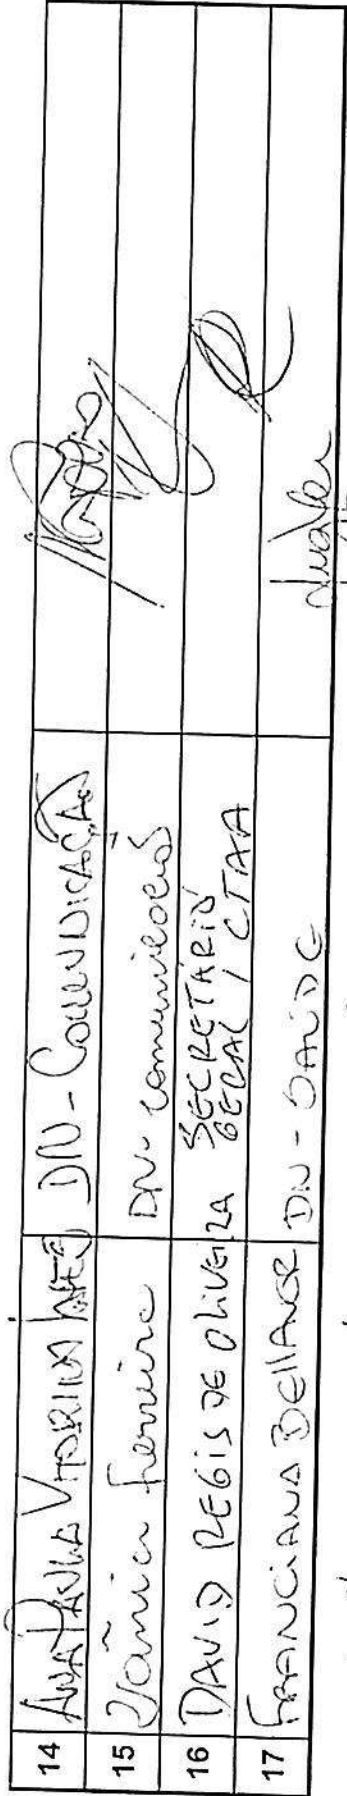 14 Ana Paula Vitorino DN - Comunicação
15 Vânia Ferreira DN - Comunicação
16 DAVID REGIS DE OLIVEIRA SECRETÁRIO
GERAL / CTAA
17 FRANCIANA BELLANGE DN - SAÚDE